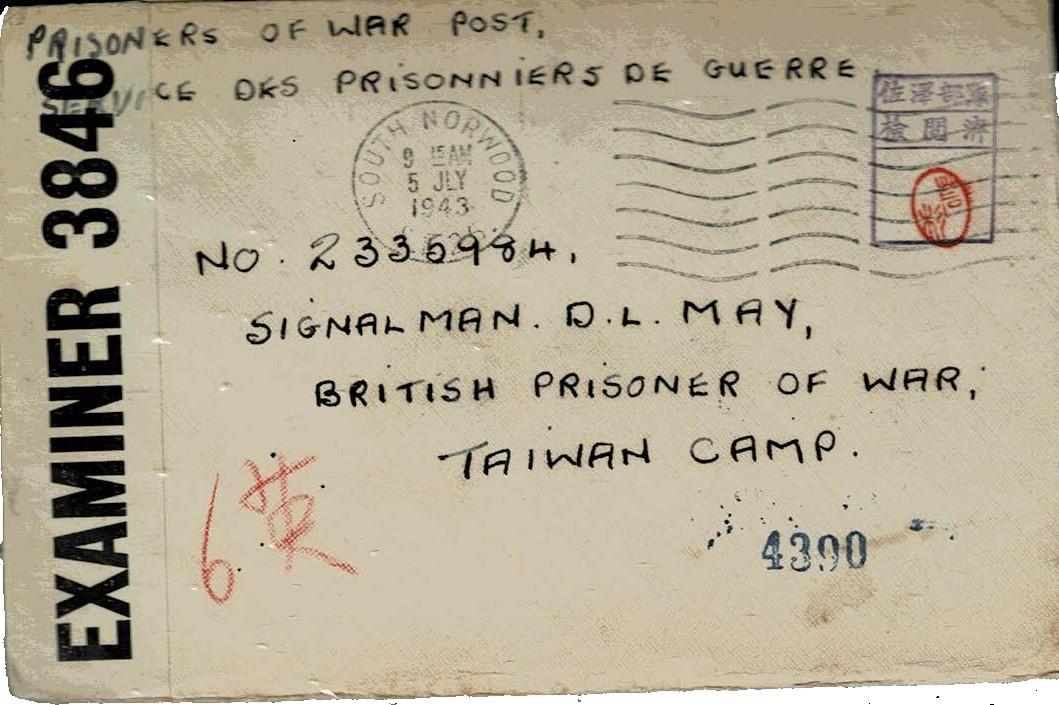 PRISONERS OF WAR POST,
SERVICE DES PRISONNIERS DE GUERRE
EXAMINER 3846
SOUTH NORWOOD
9 15AM
5 JLY
1943
佐澤部隊
檢閲濟
NO. 2335984.
SIGNALMAN. D.L. MAY,
BRITISH PRISONER OF WAR,
TAIWAN CAMP.
6 英
4390